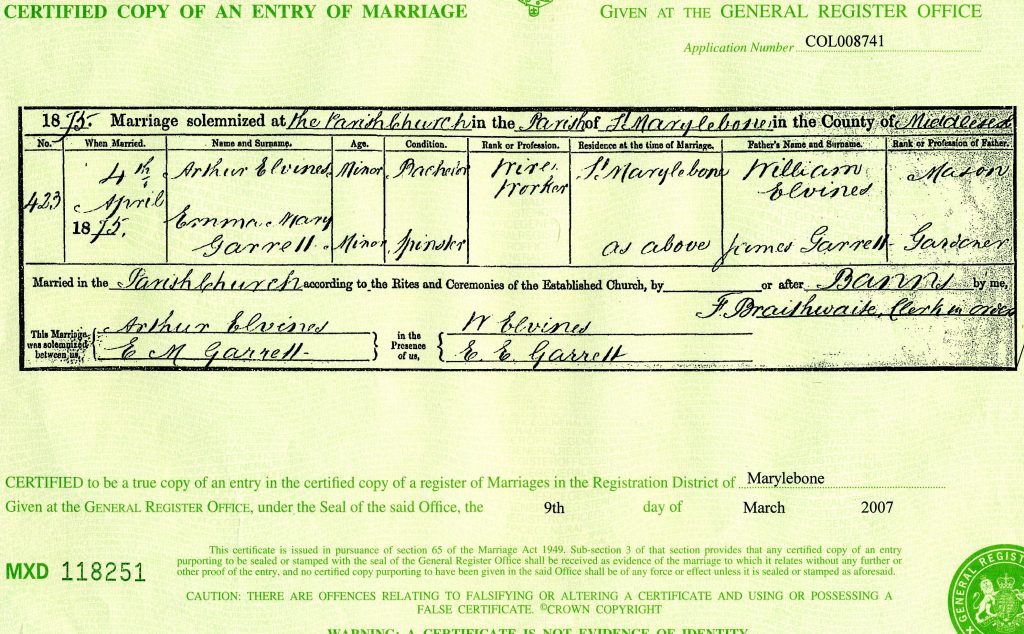 CERTIFIED COPY OF AN ENTRY OF MARRIAGE
GIVEN AT THE GENERAL REGISTER OFFICE
Application Number COL008741
1875. Marriage solemnized at the Parish Church in the Parish of St Marylebone in the County of Middlesex
No. When Married. Name and Surname. Age. Condition. Rank or Profession. Residence at the time of Marriage. Father's Name and Surname. Rank or Profession of Father.
423 4th April 1875. Arthur Elvines Minor Bachelor Wire Worker St Marylebone William Elvines Mason
Emma Mary Garrett Minor Spinster as above James Garrett Gardener
Married in the Parish Church according to the Rites and Ceremonies of the Established Church, by or after Banns by me,
F. Braithwaite, Clerk in
This Marriage was solemnized between us, Arthur Elvines in the Presence of us, W Elvines
E M Garrett E. E. Garrett
CERTIFIED to be a true copy of an entry in the certified copy of a register of Marriages in the Registration District of Marylebone
Given at the GENERAL REGISTER OFFICE, under the Seal of the said Office, the 9th day of March 2007
This certificate is issued in pursuance of section 65 of the Marriage Act 1949. Sub-section 3 of that section provides that any certified copy of an entry
purporting to be sealed or stamped with the seal of the General Register Office shall be received as evidence of the marriage to which it relates without any further or
other proof of the entry, and no certified copy purporting to have been given in the said Office shall be of any force or effect unless it is sealed or stamped as aforesaid.
MXD 118251
CAUTION: THERE ARE OFFENCES RELATING TO FALSIFYING OR ALTERING A CERTIFICATE AND USING OR POSSESSING A
FALSE CERTIFICATE. ©CROWN COPYRIGHT
WARNING: A CERTIFICATE IS NOT EVIDENCE OF IDENTITY
GENERAL REGIST